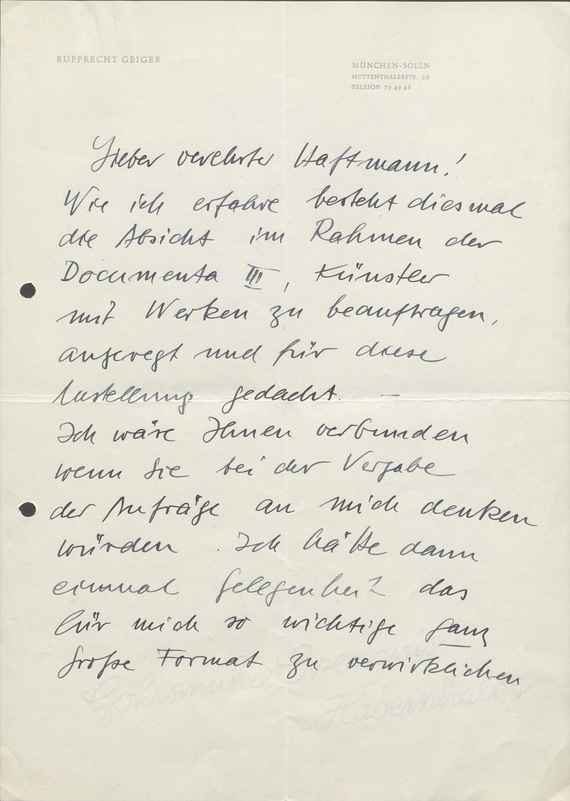 RUPPRECHT GEIGER
MÜNCHEN-SOLLN
MUTTENTHALERSTR. 26
TELEFON 79 49 48
Lieber verehrter Haftmann!
Wie ich erfahre besteht diesmal
die Absicht im Rahmen der
Documenta III, Künstler
mit Werken zu beauftragen,
angeregt und für diese
gedacht. —
Ich wäre Ihnen verbunden
wenn Sie bei der Vergabe
der Aufräge an mich denken
würden. Ich hätte dann
einmal Gelegenheit das
für mich so wichtige ganz
große Format zu verwirklichen